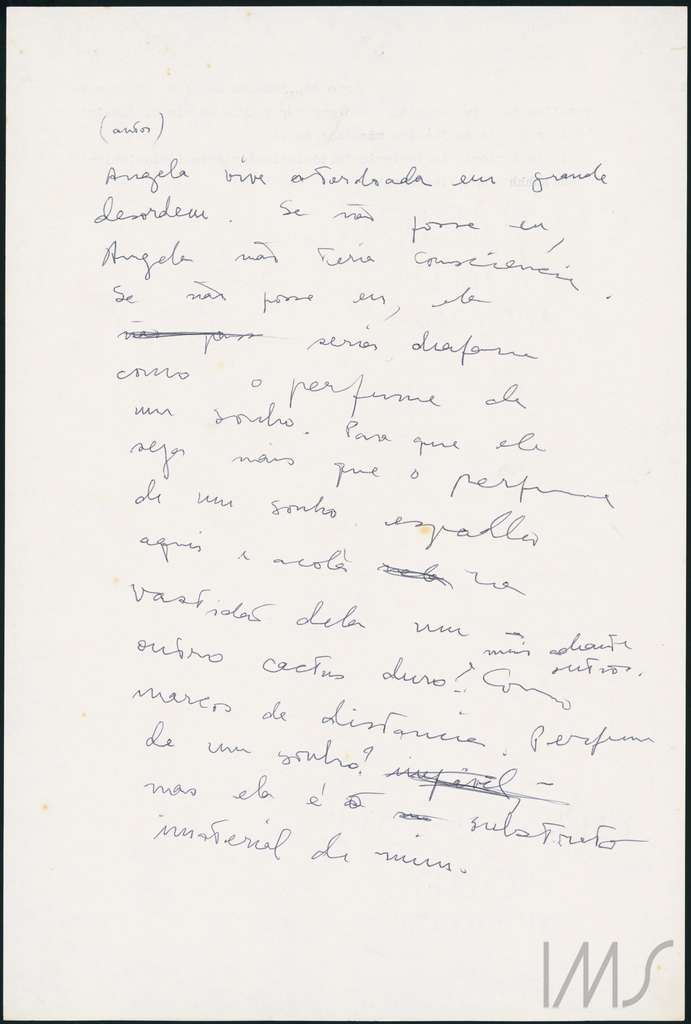 (autor)
Angela vive atordoada em grande
desordem. Se não fosse eu,
Angela não teria consciência.
Se não fosse eu, ela
não fosse seria diáfana
como o perfume de
um sonho. Para que ela
seja mais que o perfume
de um sonho espalho
aqui e acolá na
vastidão dela um – mais adiante
outro cactus duro? Como outros.
marcos de distancia. Perfume
de um sonho?
mas ela é o substrato
imaterial de mim.
IMS